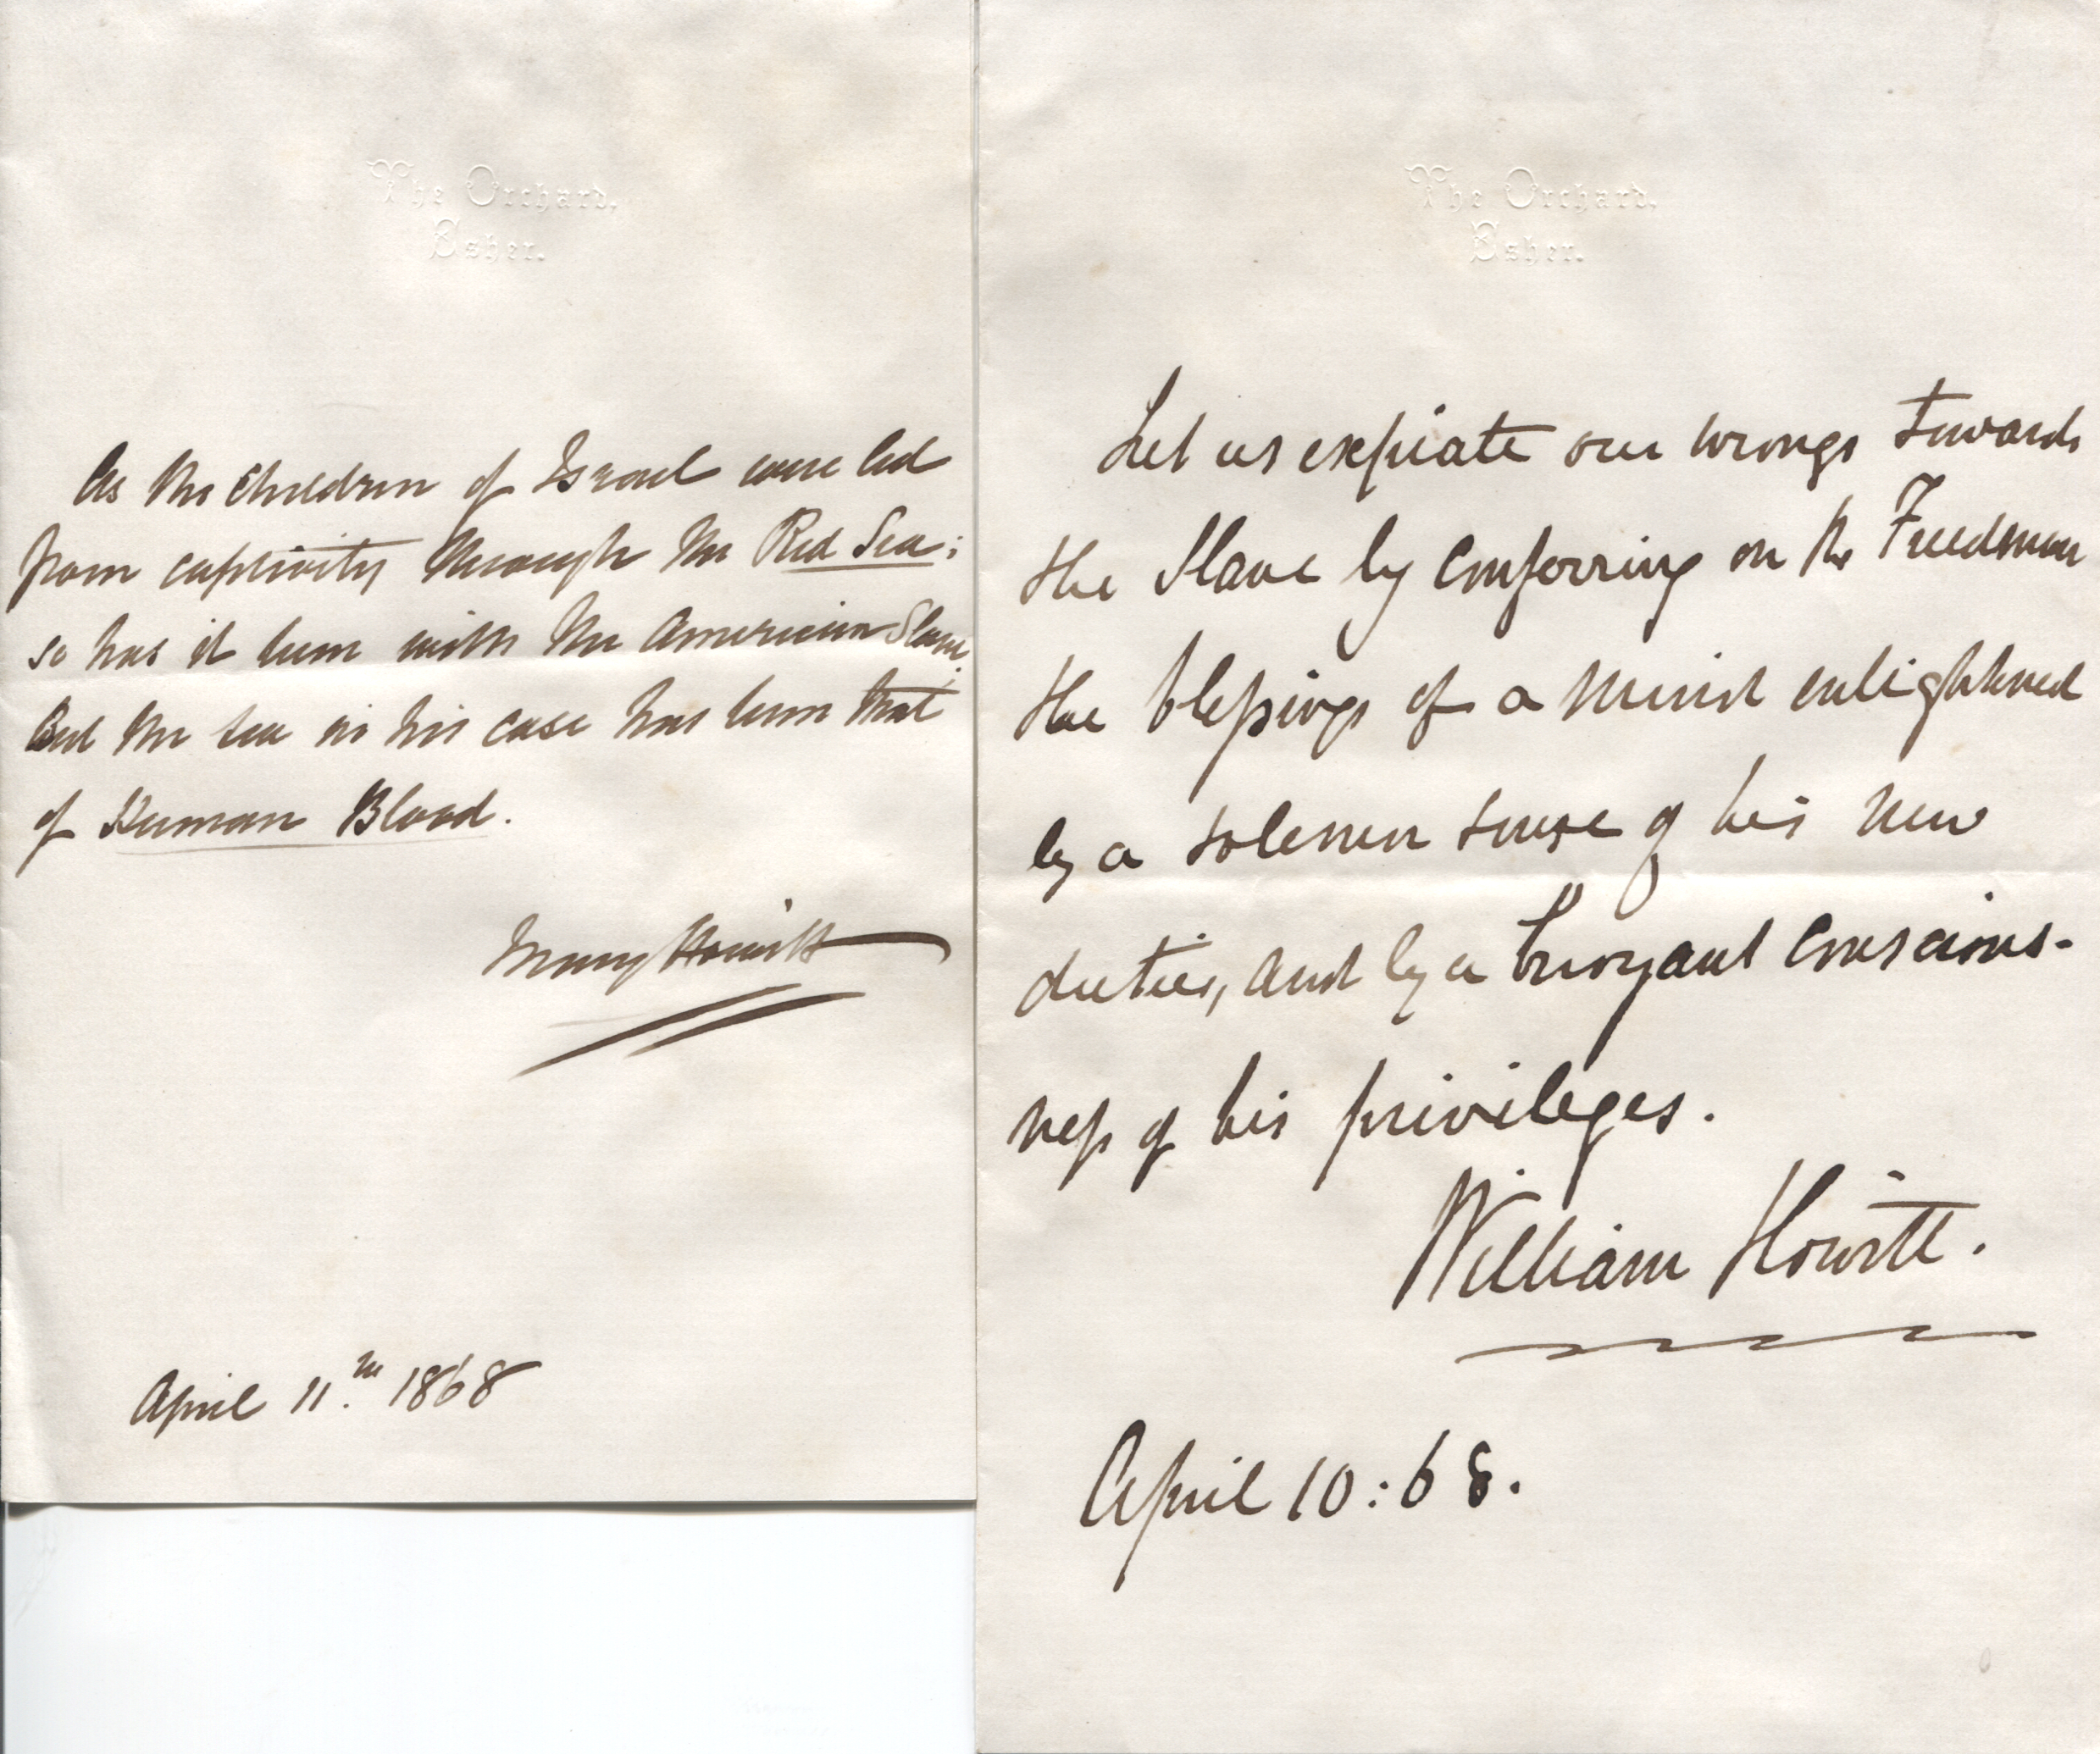 The Orchard,
Esher.
As the Children of Israel were led
from captivity through the Red Sea;
so has it been with the American Slave.
But the sea in his case has been that
of Human Blood.
Mary Howitt
April 11.th 1868
The Orchard,
Esher.
Let us expiate our wrongs towards
the Slave by conferring on the Freedman
the blessings of a mind enlightened
by a solemn sense of his new
duties, and by a buoyant conscious-
ness of his privileges.
William Howitt.
April 10:68.